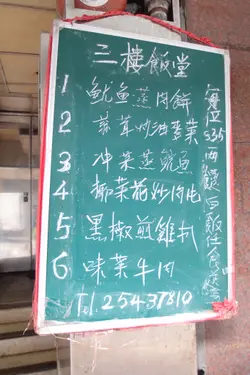 二樓飯堂
1 魷魚蒸肉餅
2 茸炒油菜
3 冲菜蒸鯇魚
4 椰菜花炒肉片
5 黑椒煎雞扒
6 味菜牛肉
Tel.25437810
每位$35 兩餸 白飯任食 送